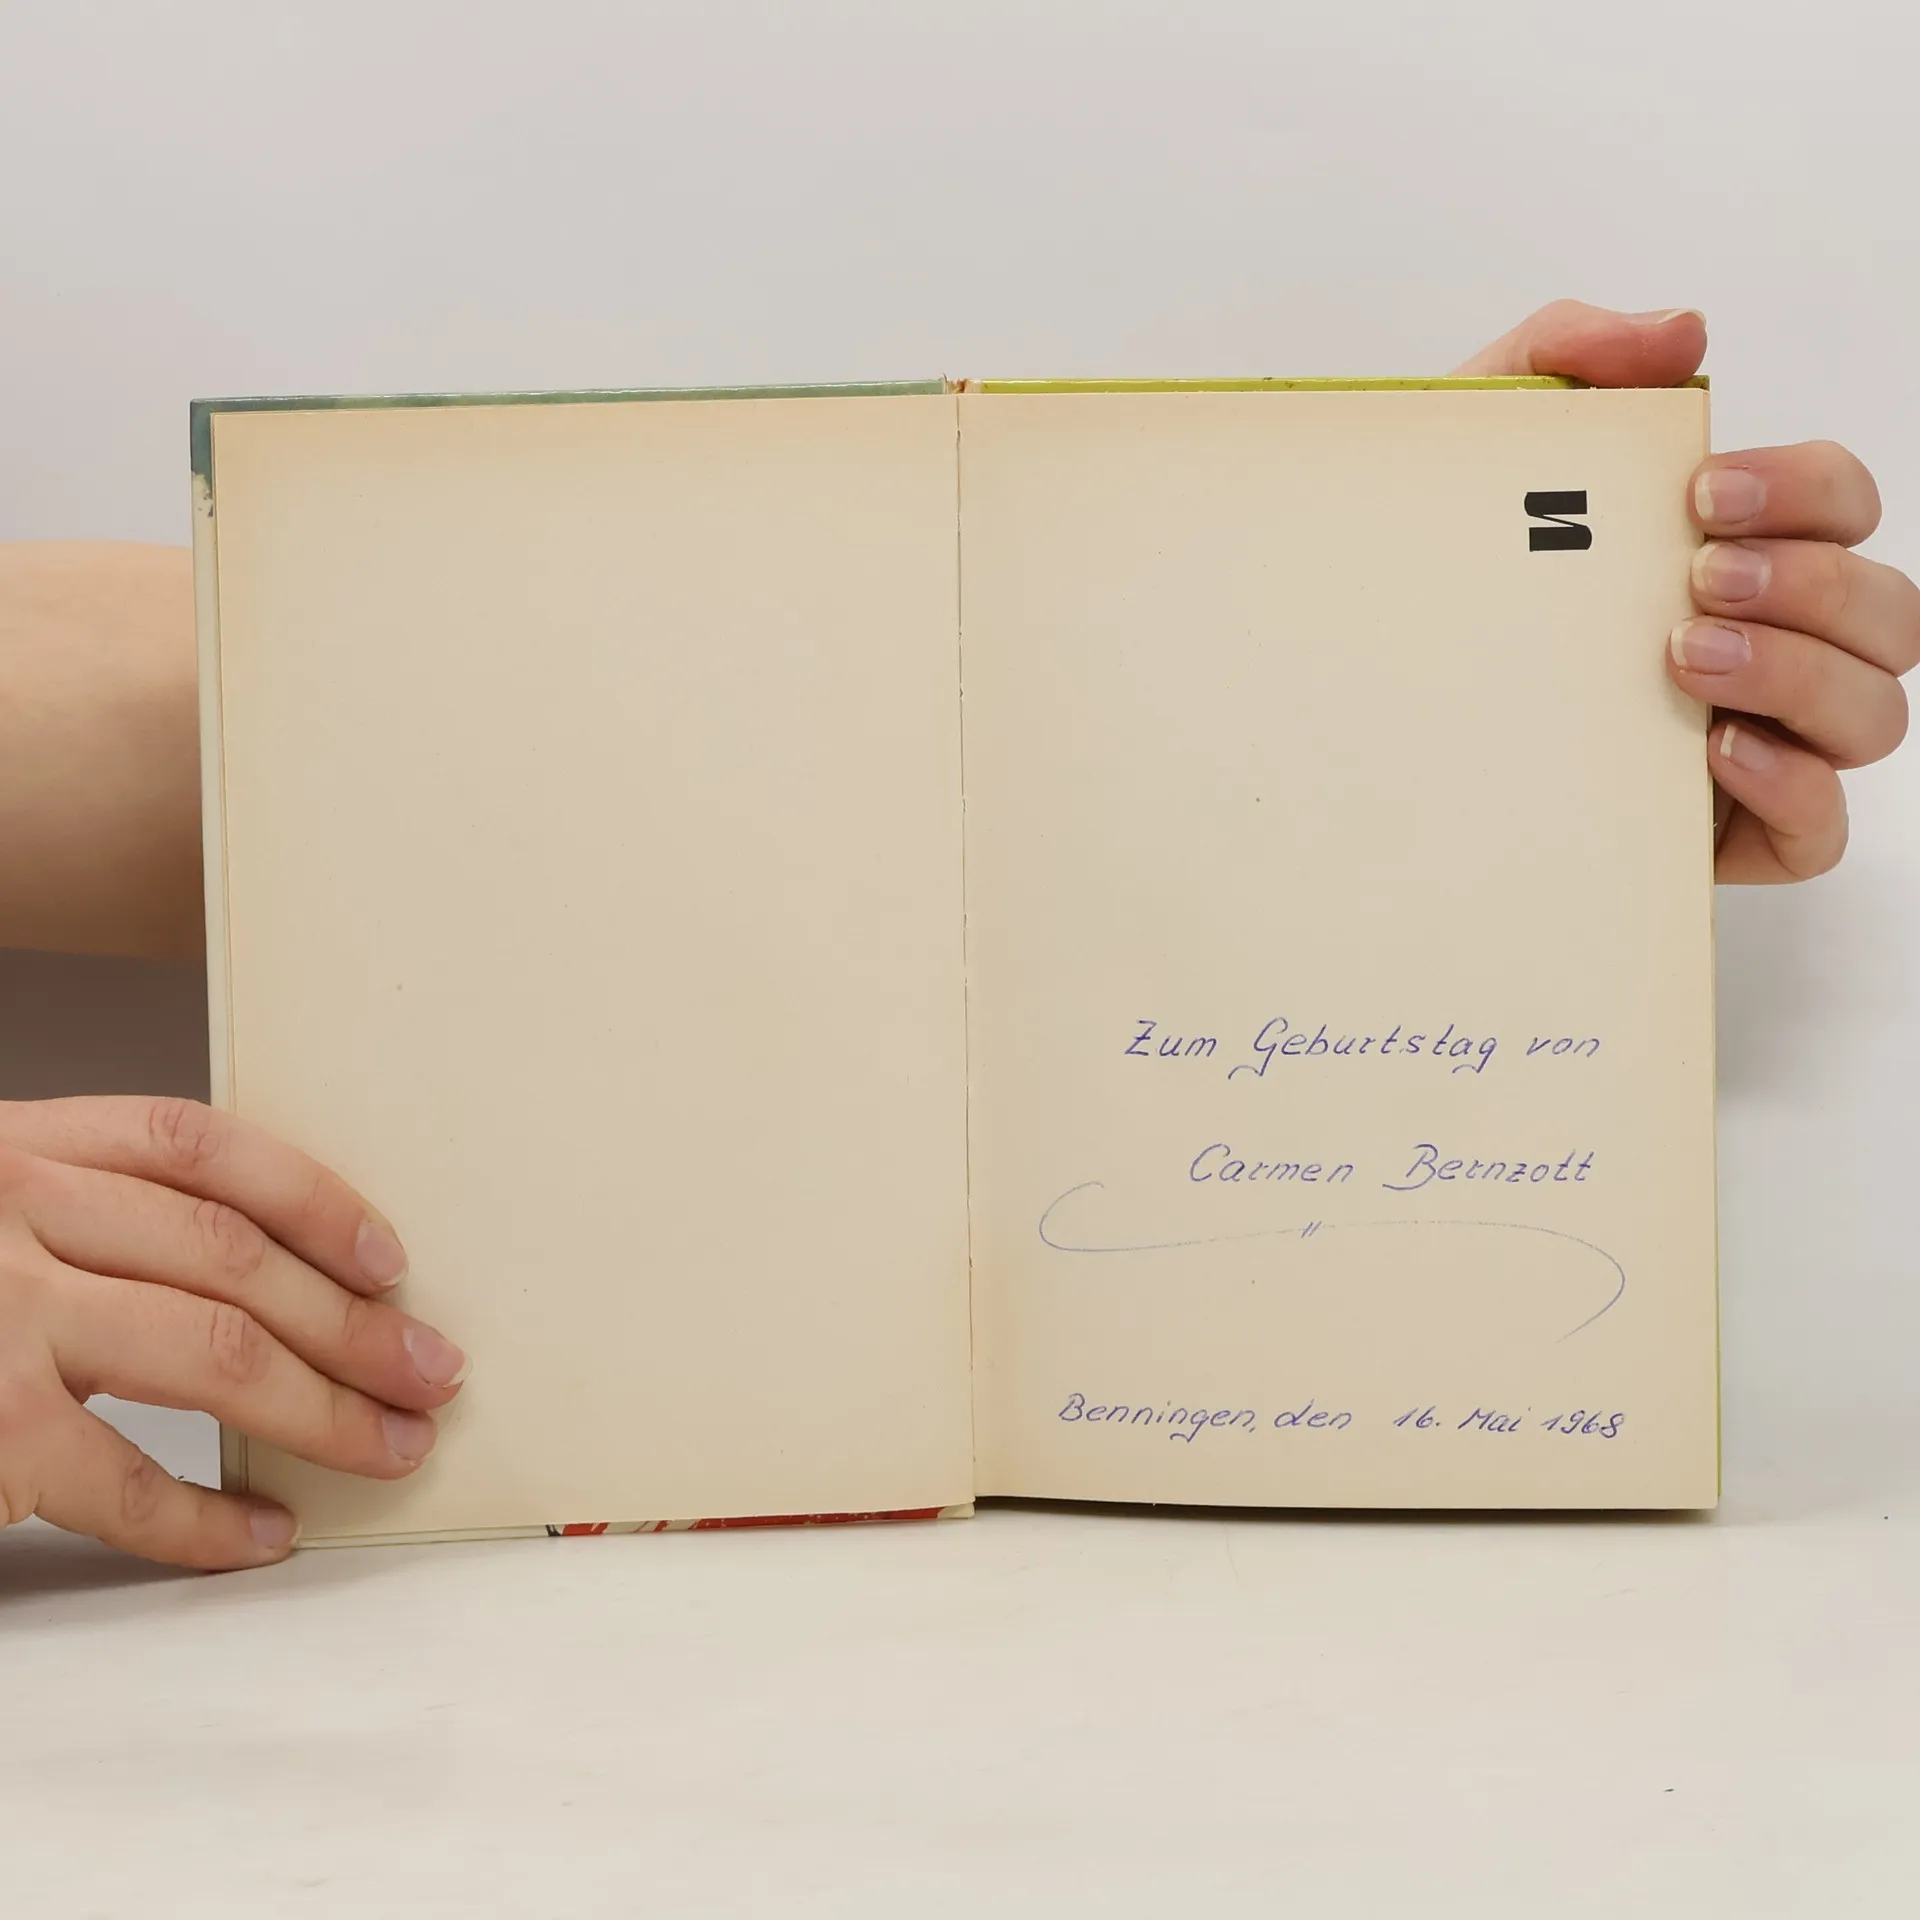 Zum Geburtstag von
Carmen Bernzott
Benningen, den 16. Mai 1968